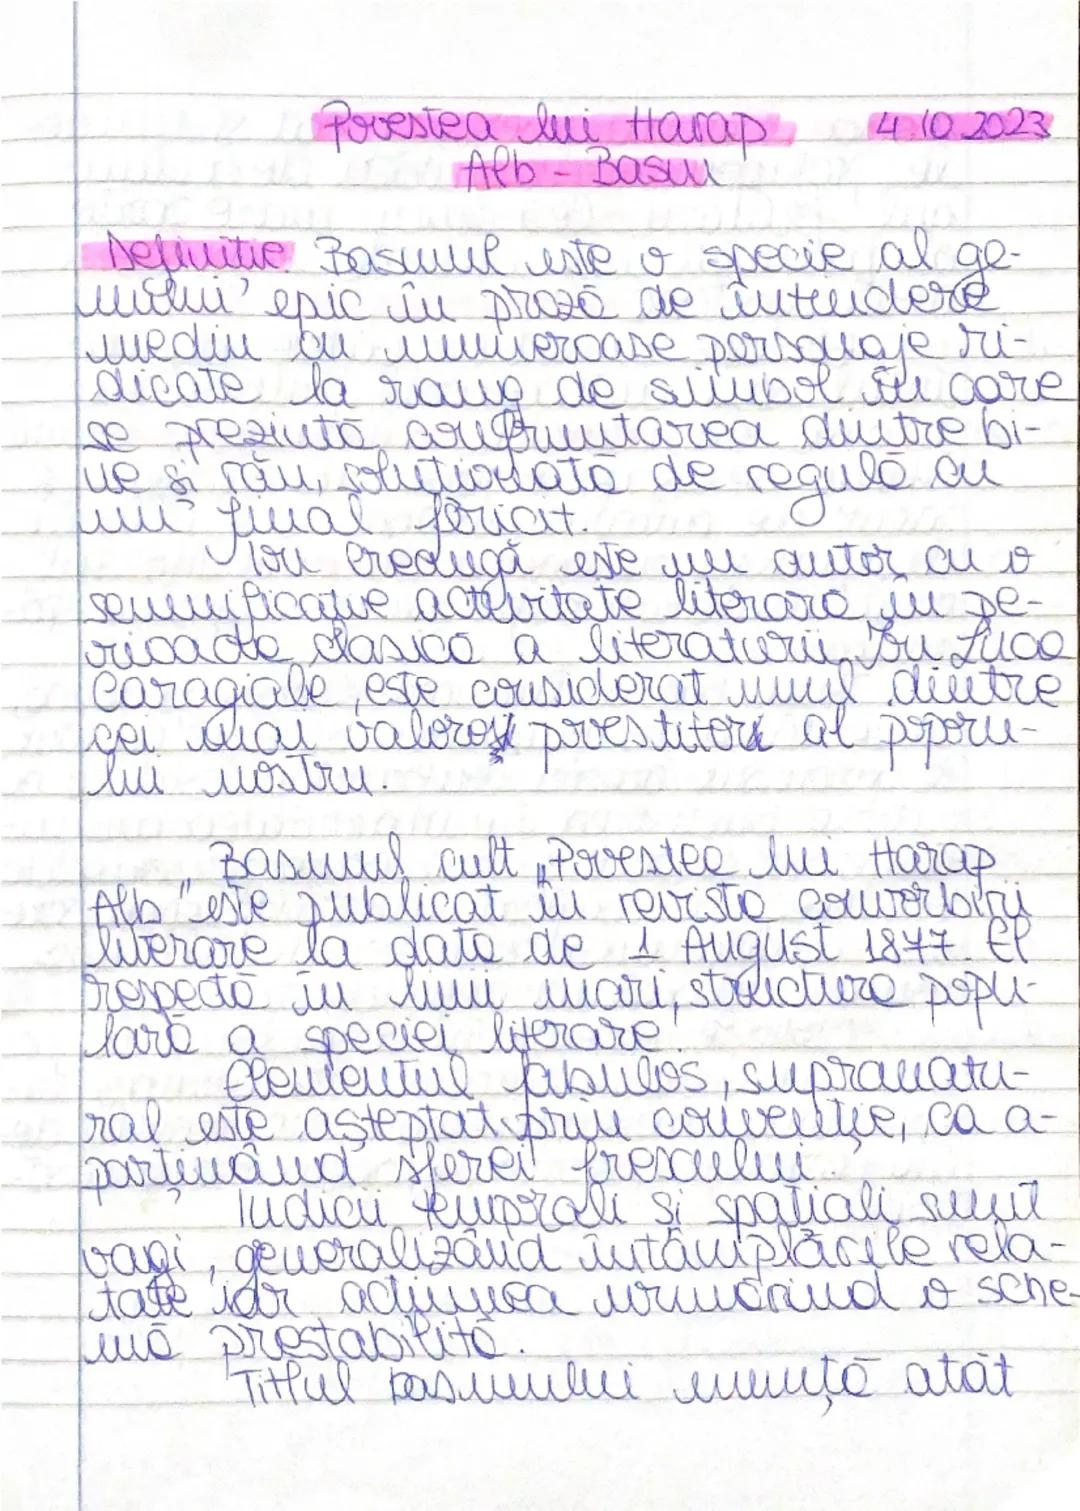 Povestea lui Harap 4.10.2023
Alb - Basm
Definiție. Basmul este o specie al ge-
nului epic în proză de întindere
mediu cu numeroase personaje ri-
dicate la rang de simbol în care
se prezintă confruntarea dintre bi-
ne și rău, soluționată de regulă cu
un final fericit.
Ion Creangă este un autor cu o
semnificative activitate literară în pe-
rioada clasică a literaturii, Ion Luca
Caragiale, este considerat unul dintre
cei mai valoroși povestitori al poporu-
lui nostru.
Basmul cult „Povestea lui Harap
Alb" este publicat în revista convorbiri
literare la data de 1 August 1877. El
respectă în linii mari, structura popu-
lară a speciei literare.
Elementul fabulos, supranatu-
ral este așteptat prin convenție, ca a-
parținând sferei firescului.
Indicii temporali și spațiali sunt
vagi, generalizând întâmplările rela-
tate iar acțiunea urmărind o sche-
mă prestabilită.
Titlul basmului anunță atât